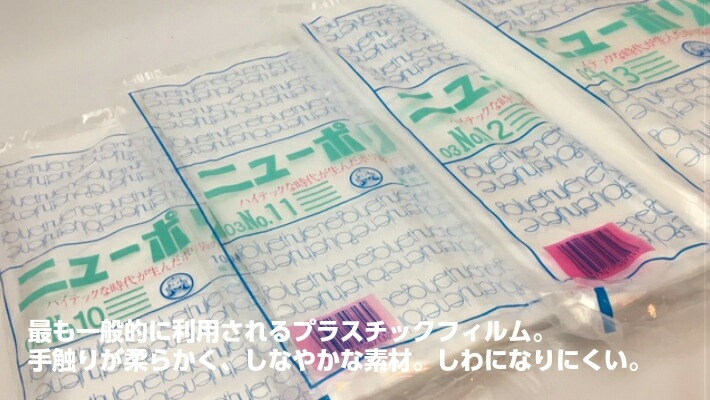 ニューポリ
ハイテックな時代が生んだポリ
10
ニューポリ
ハイテックな時代が生んだポリ
03 No.11
100
ニューポリ
03 No.12
ニューポリ
ハイテックな時代が生
13
polyethylene
最も一般的に利用されるプラスチックフィルム。
手触りが柔らかく、しなやかな素材。しわになりにくい。